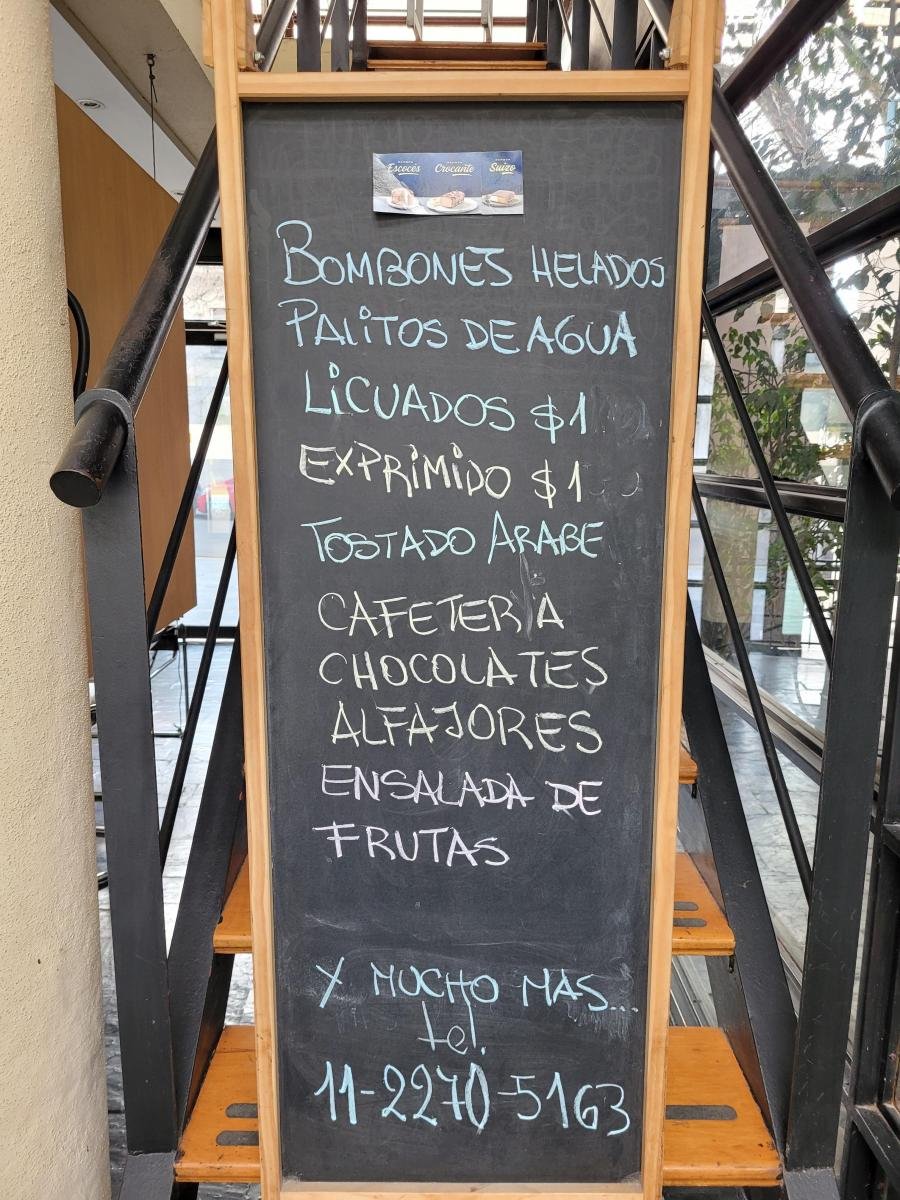 Escocés Crocante Suizo
BOMBONES HELADOS
PALITOS DE AGUA
LICUADOS $1
EXPRIMIDO $1
TOSTADO ARABE
CAFETERIA
CHOCOLATES
ALFAJORES
ENSALADA DE
FRUTAS
Y MUCHO MAS...
tel.
11-2270-5163